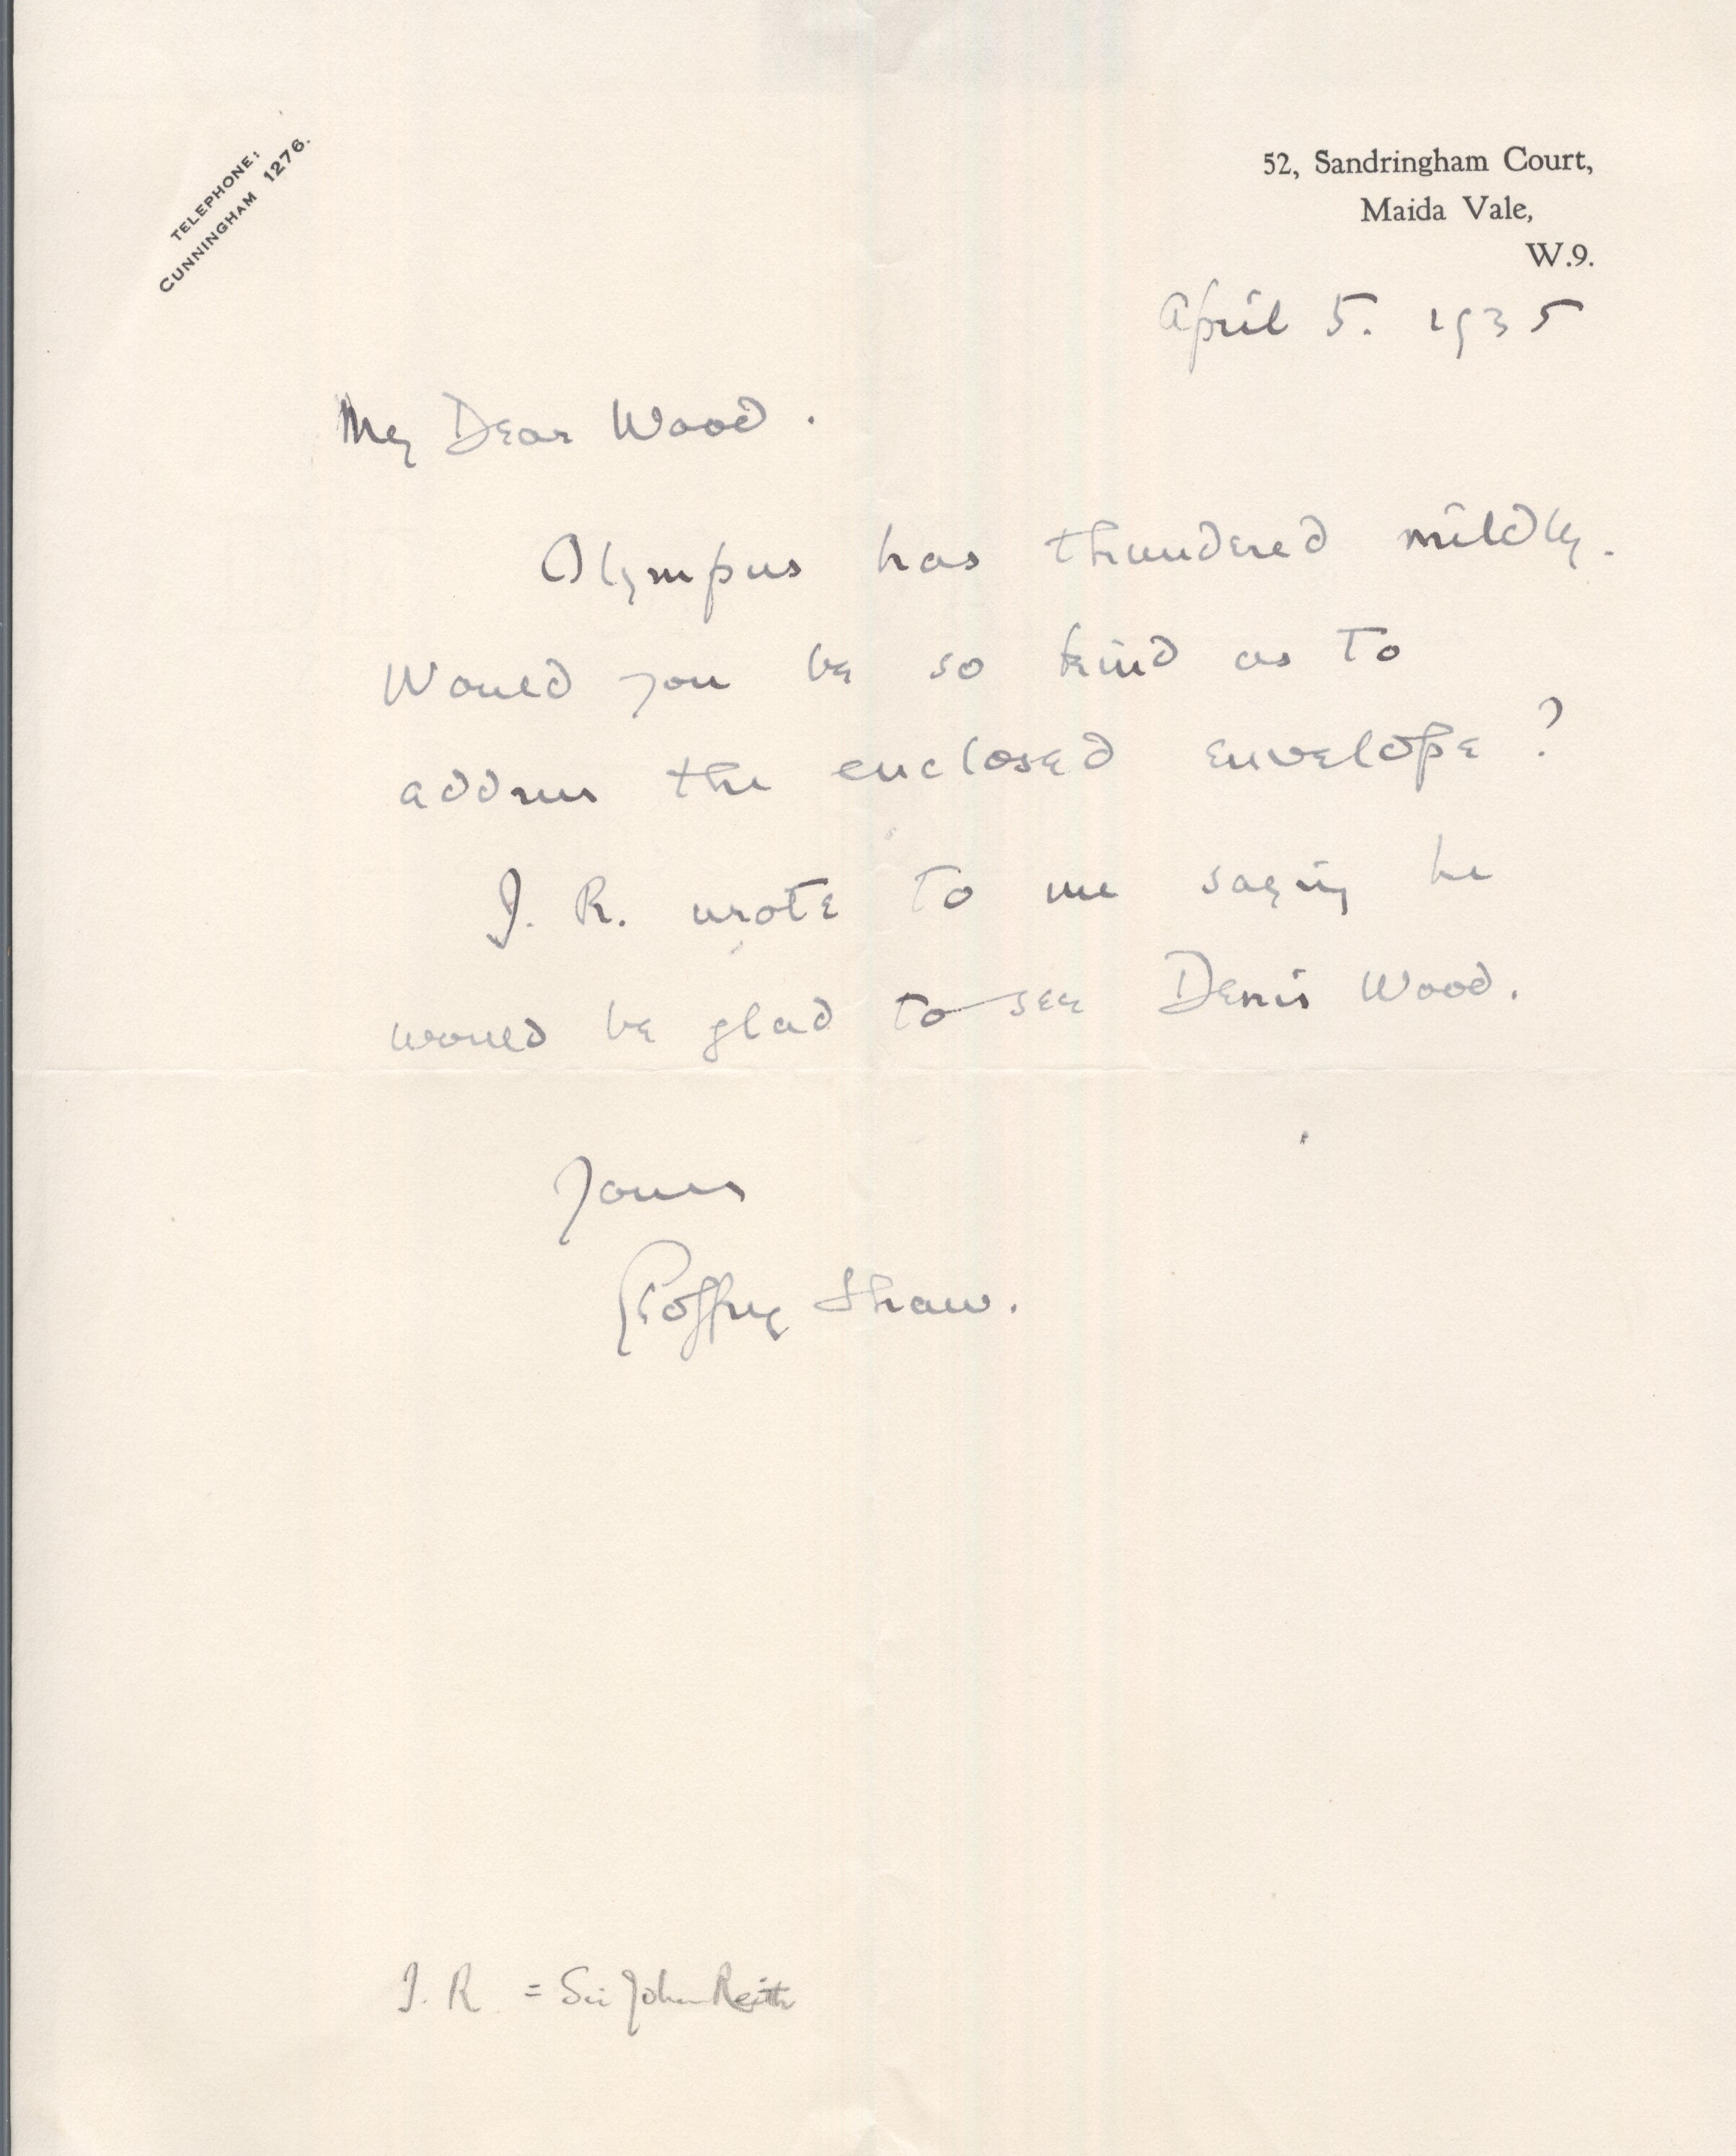 TELEPHONE:
CUNNINGHAM 1276.
52, Sandringham Court,
Maida Vale,
W.9.
April 5. 1935
My Dear Wood.
Olympus has thundered mildly.
Would you be so kind as to
address the enclosed envelope?
J. R. wrote to me saying he
would be glad to see Denis Wood.
Yours
Geoffrey Shaw.
J. R. = Sir John Reith